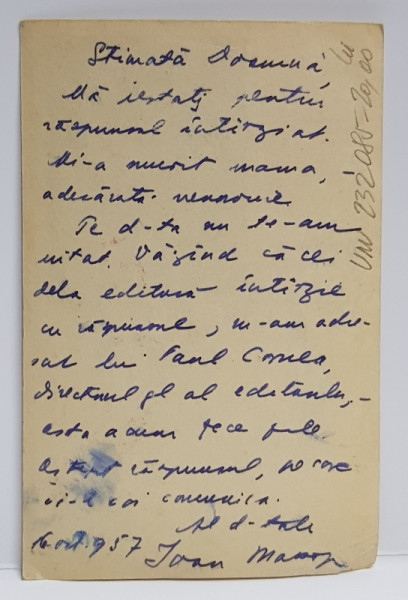 Stimată Doamnă,
Mă iertaţi pentru
răspunsul întîrziat.
Mi-a murit mama, -
adevărată nenorocire.
Pe d-ta nu te-am
uitat. Văzînd că cei
dela editură întîrzie
cu răspunsul, m-am adre-
sat lui Paul Cornea,
directorul gl al editurilor, -
asta acum zece zile.
Aştept răspunsul, pe care
vi-l voi comunica.
Al d-tale
16 oct. 957 Ioan
lei
VNV 232085-20,00